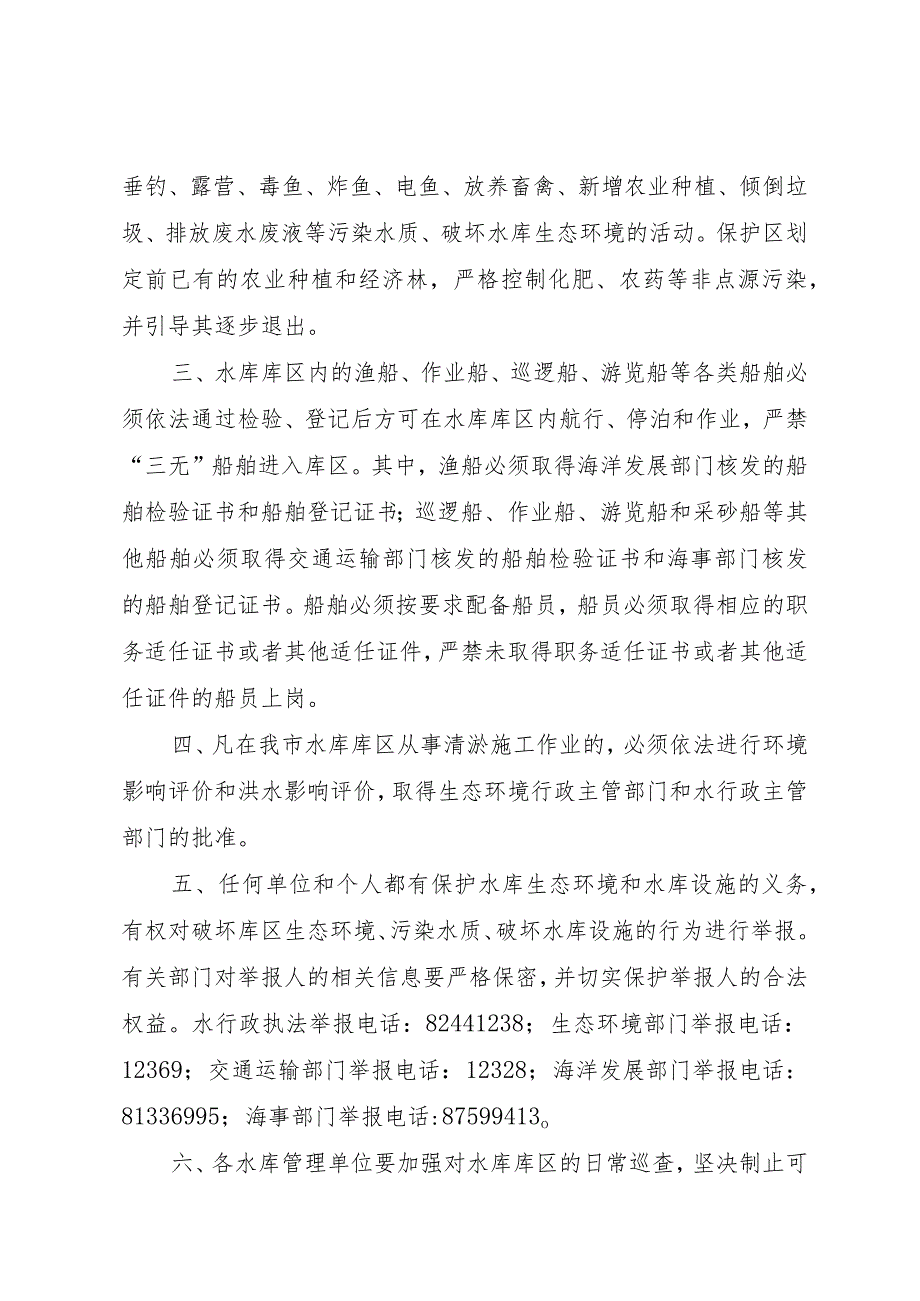 垂钓、露营、毒鱼、炸鱼、电鱼、放养畜禽、新增农业种植、倾倒垃
圾、排放废水废液等污染水质、破坏水库生态环境的活动。保护区划
定前已有的农业种植和经济林，严格控制化肥、农药等非点源污染，
并引导其逐步退出。
三、水库库区内的渔船、作业船、巡逻船、游览船等各类船舶必
须依法通过检验、登记后方可在水库库区内航行、停泊和作业，严禁
“三无”船舶进入库区。其中，渔船必须取得海洋发展部门核发的船
舶检验证书和船舶登记证书；巡逻船、作业船、游览船和采砂船等其
他船舶必须取得交通运输部门核发的船舶检验证书和海事部门核发
的船舶登记证书。船舶必须按要求配备船员，船员必须取得相应的职
务适任证书或者其他适任证件，严禁未取得职务适任证书或者其他适
任证件的船员上岗。
四、凡在我市水库库区从事清淤施工作业的，必须依法进行环境
影响评价和洪水影响评价，取得生态环境行政主管部门和水行政主管
部门的批准。
五、任何单位和个人都有保护水库生态环境和水库设施的义务，
有权对破坏库区生态环境、污染水质、破坏水库设施的行为进行举报。
有关部门对举报人的相关信息要严格保密，并切实保护举报人的合法
权益。水行政执法举报电话：82441238；生态环境部门举报电话：
12369；交通运输部门举报电话：12328；海洋发展部门举报电话：
81336995；海事部门举报电话:87599413。
六、各水库管理单位要加强对水库库区的日常巡查，坚决制止可